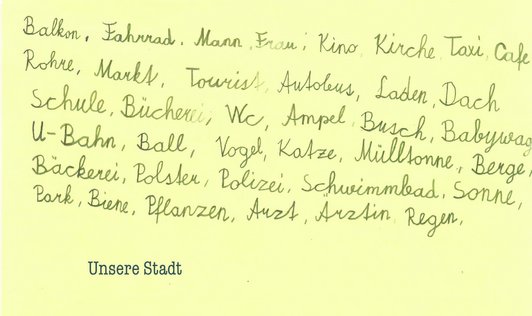 Balkon, Fahrrad, Mann, Frau, Kino, Kirche, Taxi, Cafe
Rohre, Markt, Tourist, Autobus, Laden, Dach
Schule, Bücherei, Wc, Ampel, Busch, Babywag
U-Bahn, Ball, Vogel, Katze, Mülltonne, Berge,
Bäckerei, Polster, Polizei, Schwimmbad, Sonne,
Park, Biene, Pflanzen, Arzt, Ärztin, Regen,
Unsere Stadt